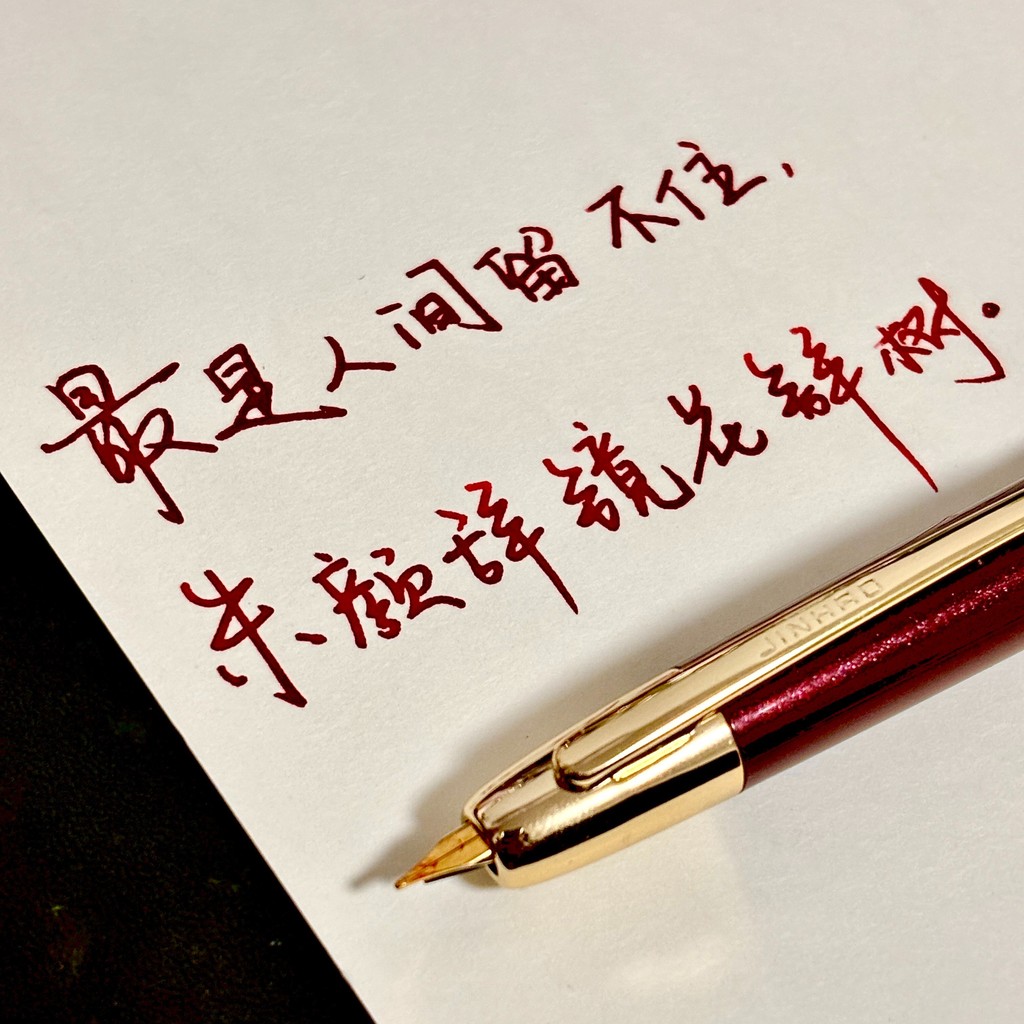 最是人间留不住，
朱颜辞镜花辞树.
JINHAO